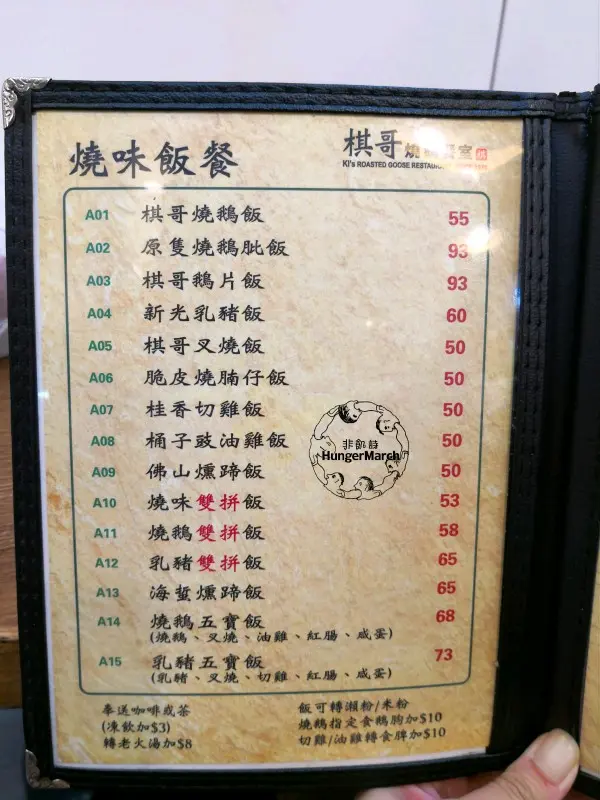 燒味飯餐
棋哥燒鵝餐室
KI's ROASTED GOOSE RESTAURANT
A01 棋哥燒鵝飯 55
A02 原隻燒鵝髀飯 93
A03 棋哥鵝片飯 93
A04 新光乳豬飯 60
A05 棋哥叉燒飯 50
A06 脆皮燒腩仔飯 50
A07 桂香切雞飯 50
A08 桶子豉油雞飯 50
A09 佛山燻蹄飯 50
A10 燒味雙拼飯 53
A11 燒鵝雙拼飯 58
A12 乳豬雙拼飯 65
A13 海蜇燻蹄飯 65
A14 燒鵝五寶飯 68
(燒鵝、叉燒、油雞、紅腸、咸蛋)
A15 乳豬五寶飯 73
(乳豬、叉燒、切雞、紅腸、咸蛋)
奉送咖啡或茶
(凍飲加$3)
轉老火湯加$8
飯可轉瀨粉/米粉
燒鵝指定食鵝胸加$10
切雞/油雞轉食脾加$10
非飢詩
HungerMarch